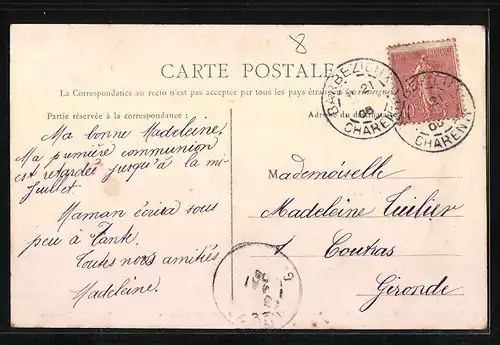 8
CARTE POSTALE
La Correspondance au recto n'est pas acceptée par tous les pays étrangers
Partie réservée à la correspondance :
BARBEZIEUX
21
05
CHARENTE
21
05
CHARENTE
Ma bonne Madeleine,
Ma première communion
est retardée jusqu'à la mi-
juillet.
Maman écrira sous
peu à Tante.
Toutes nos amitiés
Madeleine.
Mademoiselle
Madeleine
à Coutras
Gironde